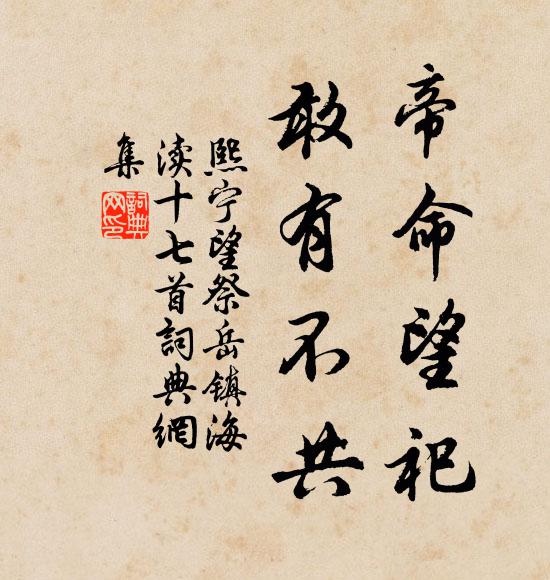 帝命望祀
敢有不共
熙宁望祭岳镇海
渎十七首詞典網
集
詞典网印